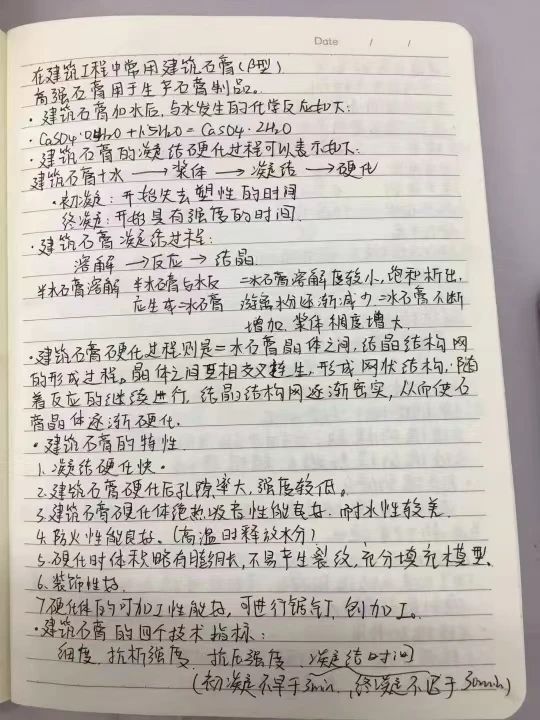 Date / /
在建筑工程中常用建筑石膏(β型)
高强石膏用于生产石膏制品。
·建筑石膏加水后,与水发生的化学反应如下:
·CaSO4·0.5H2O+1.5H2O=CaSO4·2H2O
·建筑石膏的凝结硬化过程可以表示如下:
建筑石膏+水→浆体→凝结→硬化
·初凝:开始失去塑性的时间
终凝:开始具有强度的时间.
·建筑石膏凝结过程:
溶解→反应→结晶
半水石膏溶解 半水石膏与水反 二水石膏溶解度较小,饱和析出,
应生成二水石膏 游离水分逐渐减少 二水石膏不断
增加.浆体稠度增大.
·建筑石膏硬化过程则是二水石膏晶体之间,结晶结构网
的形成过程。晶体之间互相交叉连生,形成网状结构.随
着反应的继续进行,结晶结构网逐渐密实,从而使石
膏晶体逐渐硬化.
·建筑石膏的特性.
1.凝结硬化快.
2.建筑石膏硬化后孔隙率大,强度较低。
3.建筑石膏硬化体绝热吸音性能良好.耐水性较差.
4.防火性能良好。(高温时释放水分)
5.硬化时体积略有膨胀,不易产生裂纹,充分填充模型.
6.装饰性好.
7.硬化体的可加工性能好,可进行锯、钉、刨加工。
·建筑石膏的四个技术指标:
细度、抗折强度、抗压强度、凝结时间
(初凝不早于3min,终凝不迟于30min)